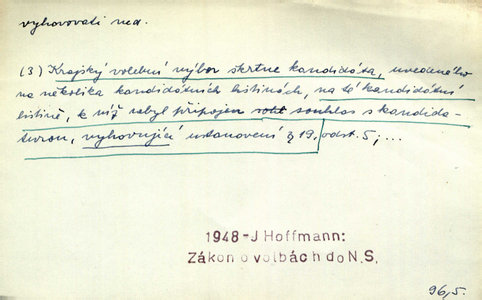 vyhovovati ned.
(3) Krajský volební výbor škrtne kandidáta, uvedeného
na několika kandidátních listinách, na té kandidátní
listině, k níž nebyl připojen souhlas s kandida-
turou, vyhovující ustanovení § 19, odst. 5; ...
1948-J Hoffmann:
Zákon o volbách do N.S.
96,5.